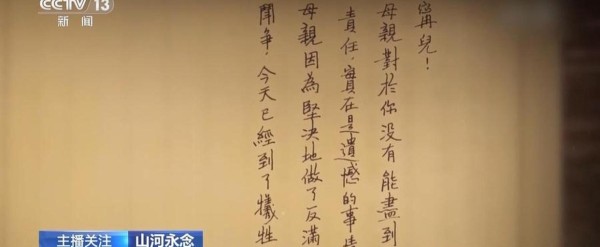 CCTV 13
新闻
甯兒！
母親對於你没有能盡到
責任，實在是遺憾的事情
母親因為堅决地做了反满
鬥争，今天已經到了犧牲
主播关注 山河永念